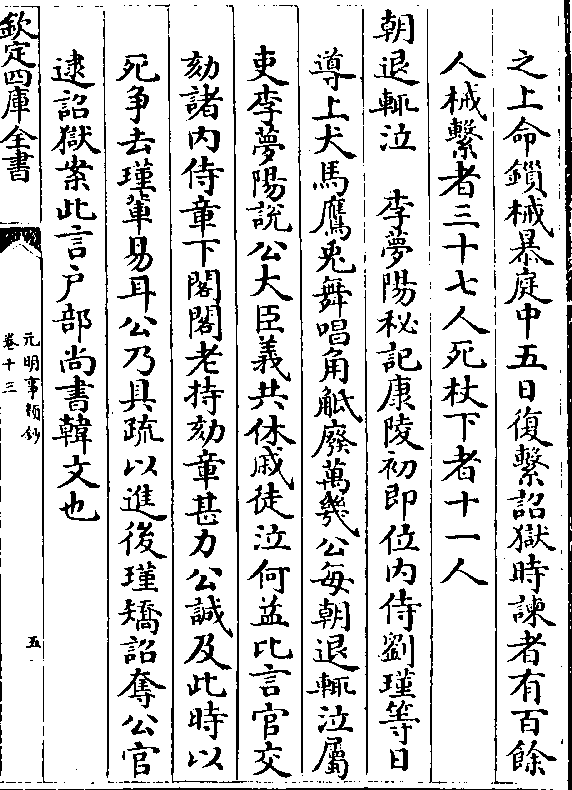 之上命鎖械暴庭中五日復繫詔獄時諫者有百餘
人械繫者三十七人死杖下者十一人
朝退輒泣　李夢陽秘記康陵初即位内侍劉瑾等日
導上犬馬鷹兎舞唱角觝廢萬幾公每朝退輒泣屬
吏李夢陽說公大臣義共休戚徒泣何益比言官交
劾諸内侍章下閣閣老持劾章甚力公誠及此時以
死争去瑾輩易耳公乃具疏以進後瑾矯詔奪公官
逮詔獄案此言户部尚書韓文也
欽定四庫全書
元明事類鈔
卷十三
五